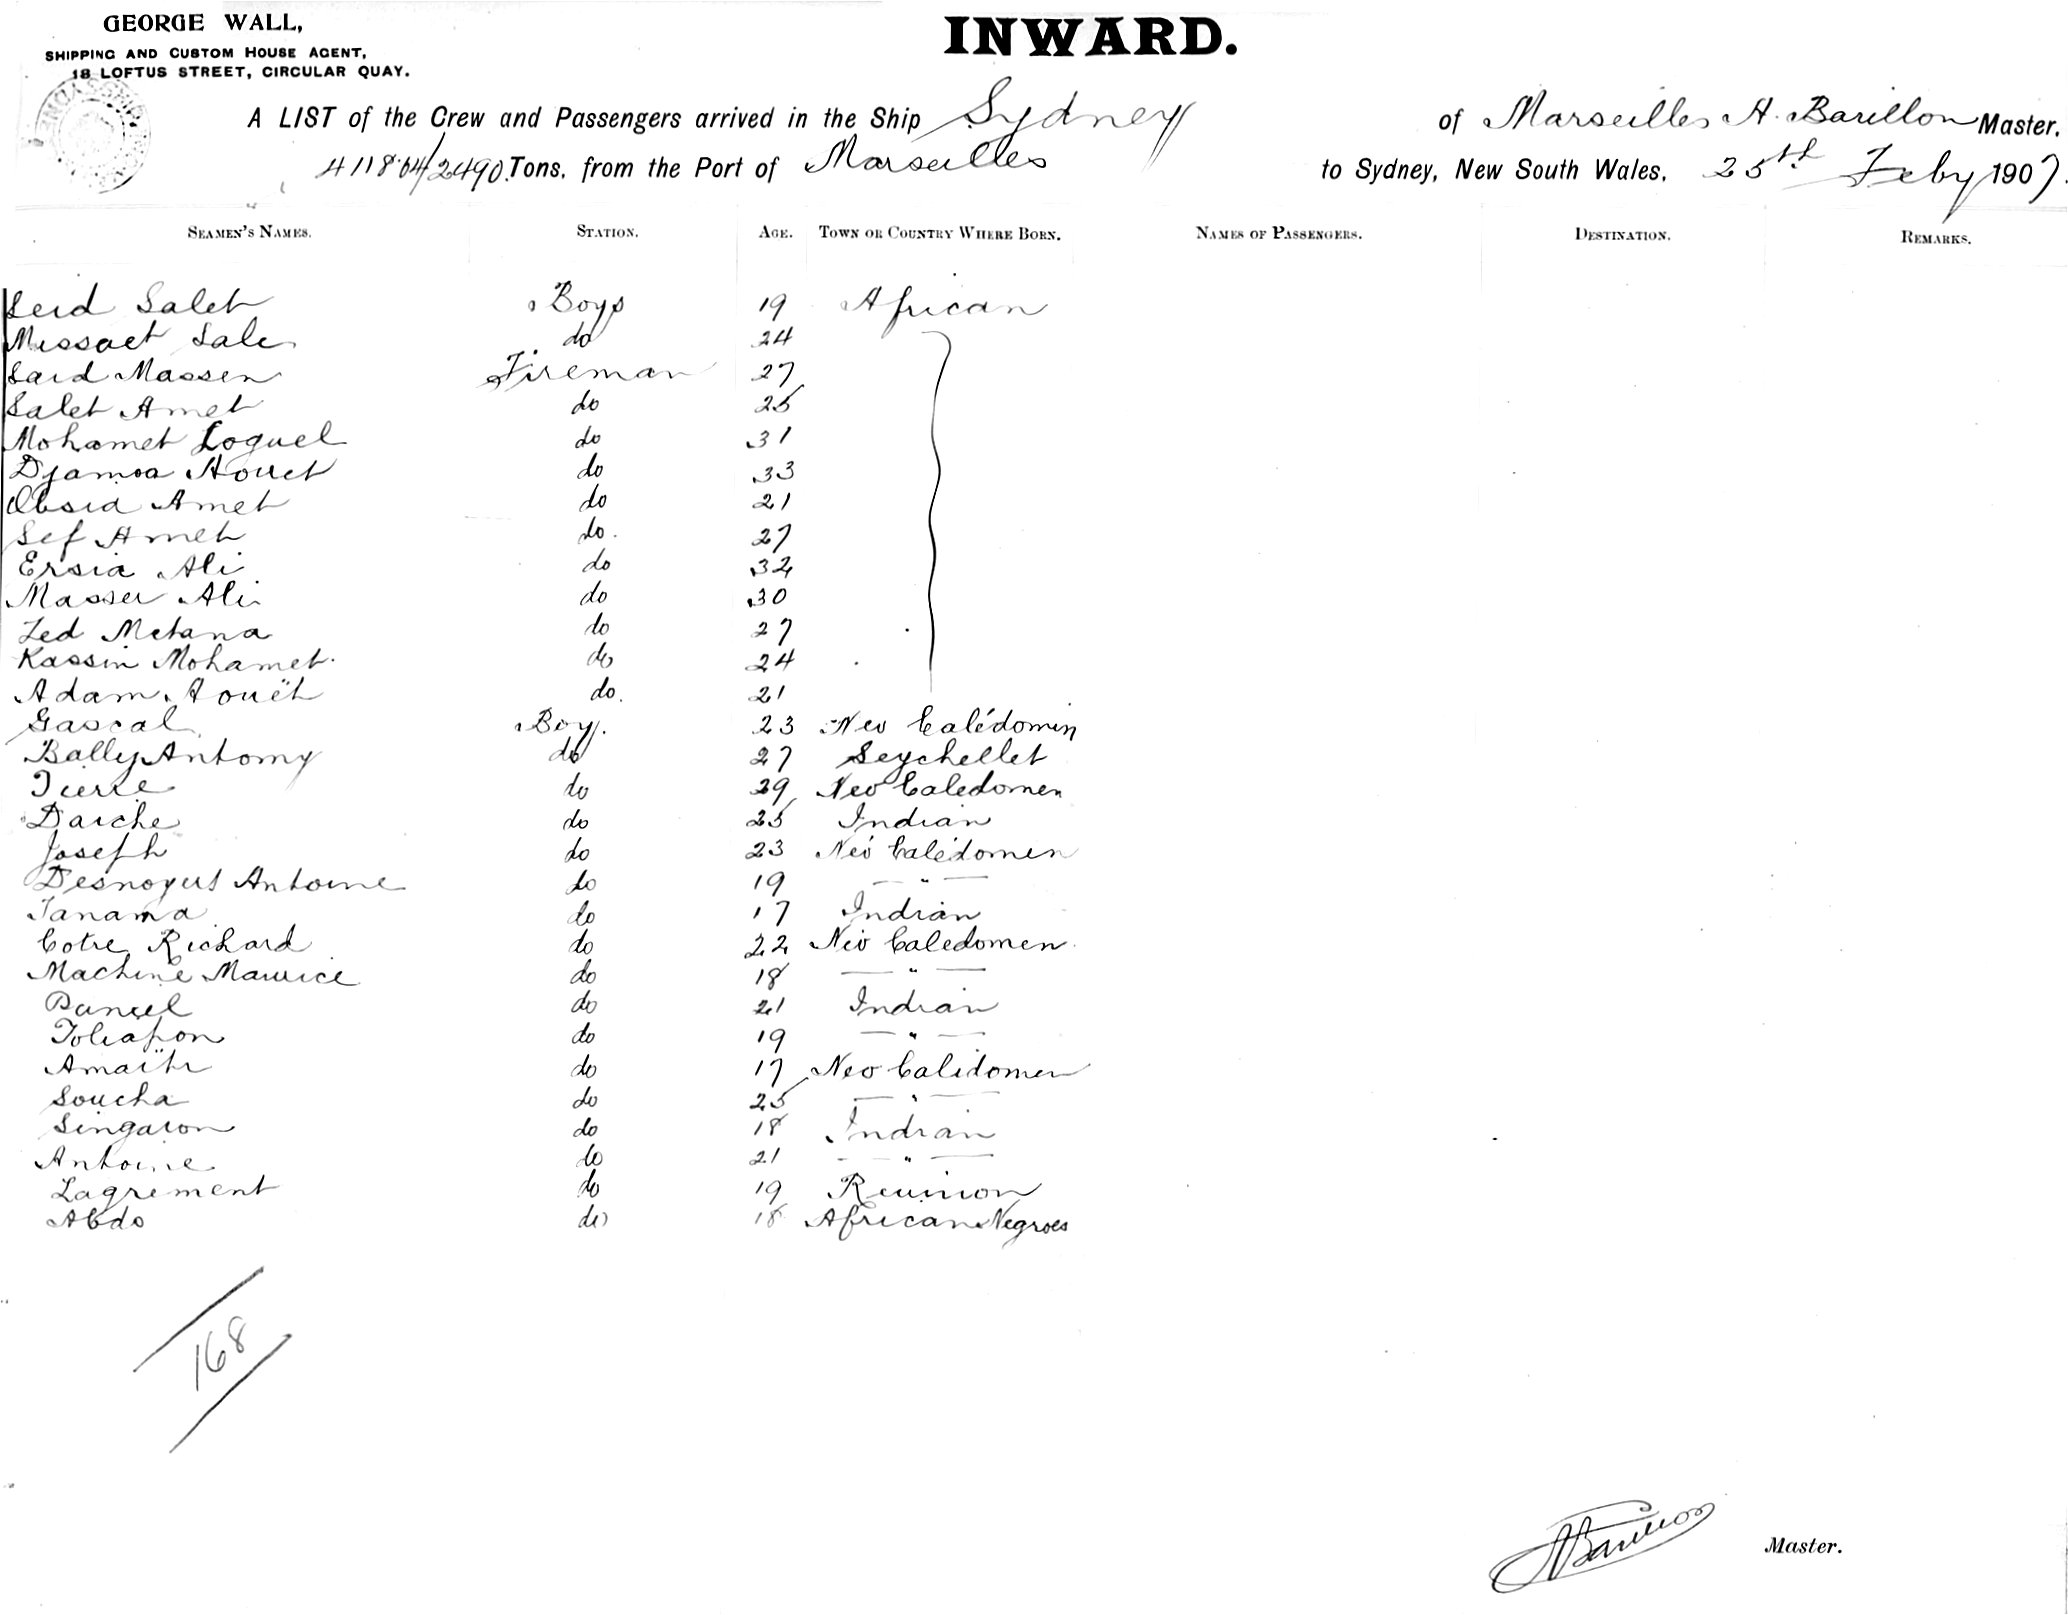 GEORGE WALL,
SHIPPING AND CUSTOM HOUSE AGENT,
18 LOFTUS STREET, CIRCULAR QUAY.
INWARD.
A LIST of the Crew and Passengers arrived in the Ship Sydney of Marseilles A. Barillon Master,
4118.04/2490 Tons, from the Port of Marseilles to Sydney, New South Wales, 25th Feby 1907.
SEAMEN'S NAMES. STATION. AGE. TOWN OR COUNTRY WHERE BORN. NAMES OF PASSENGERS. DESTINATION. REMARKS.
Seid Salet Boys 19 African
Missaet Sale do 24
Said Massen Fireman 27
Salet Amet do 25
Mohamet Loguel do 31
Djamaa Houet do 33
Obsia Amet do 21
Sef Amet do. 27
Ersia Ali do 32
Masser Ali do 30
Zed Metana do 27
Kassin Mohamet. do 24
Adam Aouët do. 21
Gascal Boy. 23 Neo Calédomin
Bally Antomy do 27 Seychellet
Pierre do 29 Neo Caledomen
Daiche do 25 Indian
Joseph do 23 Néo Calédomen
Desnoyers Antoine do 19 — " —
Tanama do 17 Indian
Cotre Richard do 22 Néo Caledomen
Machine Maurice do 18 — " —
Daniel do 21 Indian
Toliapon do 19 — " —
Amaïti do 17 Neo Calidomen
Soucha do 25 — " —
Singaron do 18 Indian
Antoine do 21 — " —
Lagrement do 19 Reunion
Abdo do 18 African Negroes
168
ABarillon Master.